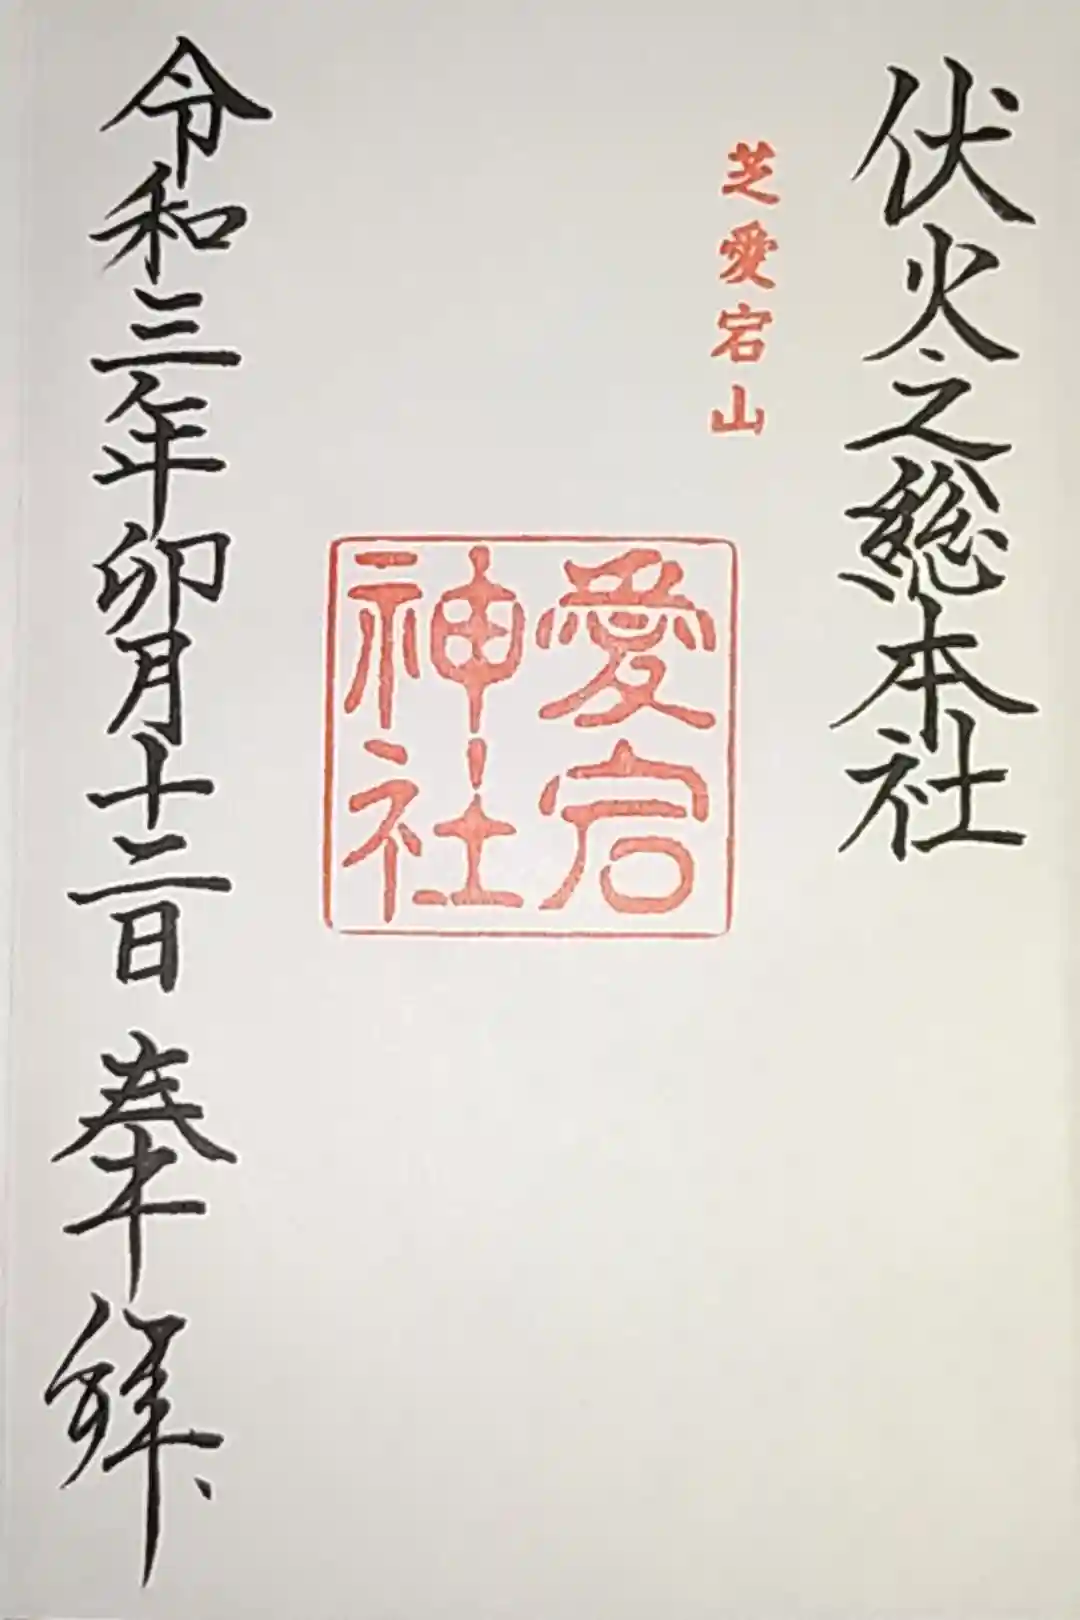 伏火之総本社
芝愛宕山
愛宕
神社
令和三年卯月十二日 奉拝